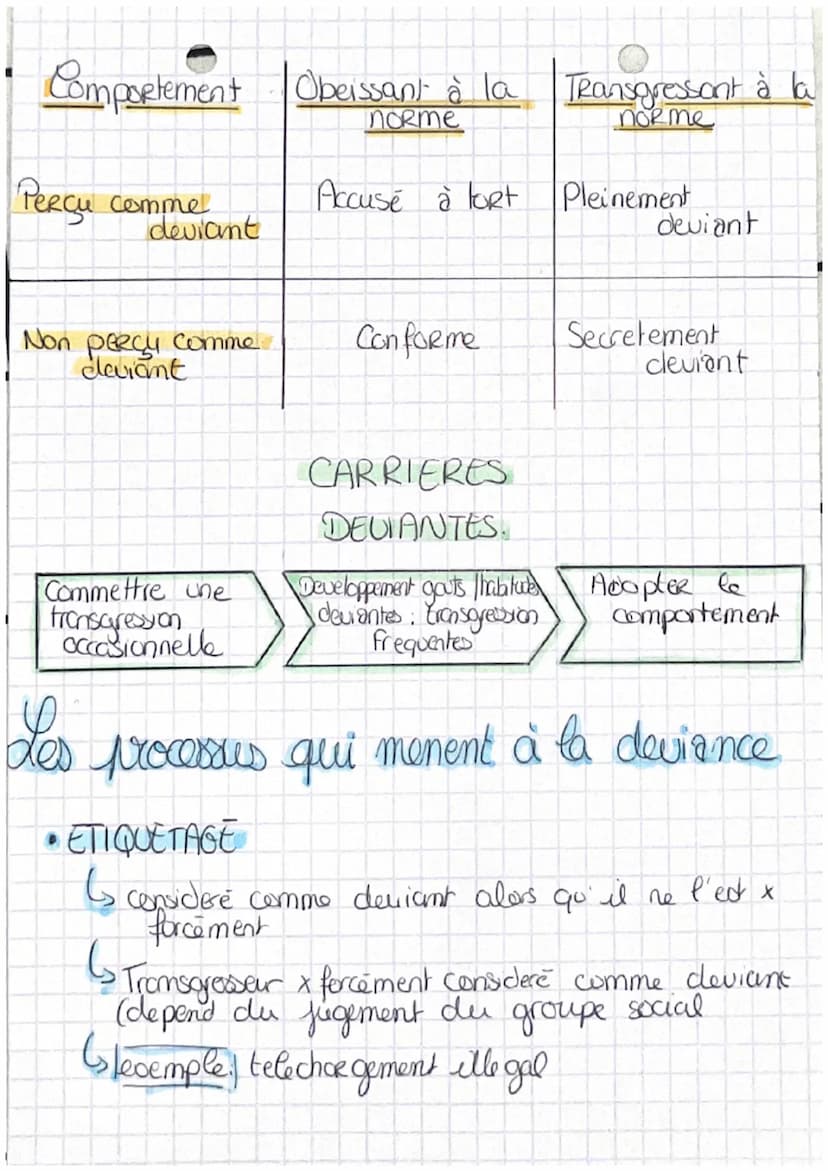 Comportement Obeissant à la Transgressant à la
norme norme
Perçu comme Accusé à tort Pleinement
deviant deviant
Non perçu comme Conforme Secretement
deviant deviant
CARRIERES
DEVIANTES.
Commettre une Developpement gouts/habitudes Adopter le
transgression deviantes : transgression comportement
occasionnelle frequentes
Les processus qui menent à la deviance
• ETIQUETAGE
↳ consideré comme deviant alors qu'il ne l'est x
forcément
↳ Transgresseur x forcément consideré comme deviant
(depend du jugement du groupe social
↳ exemple: telechargement illegal